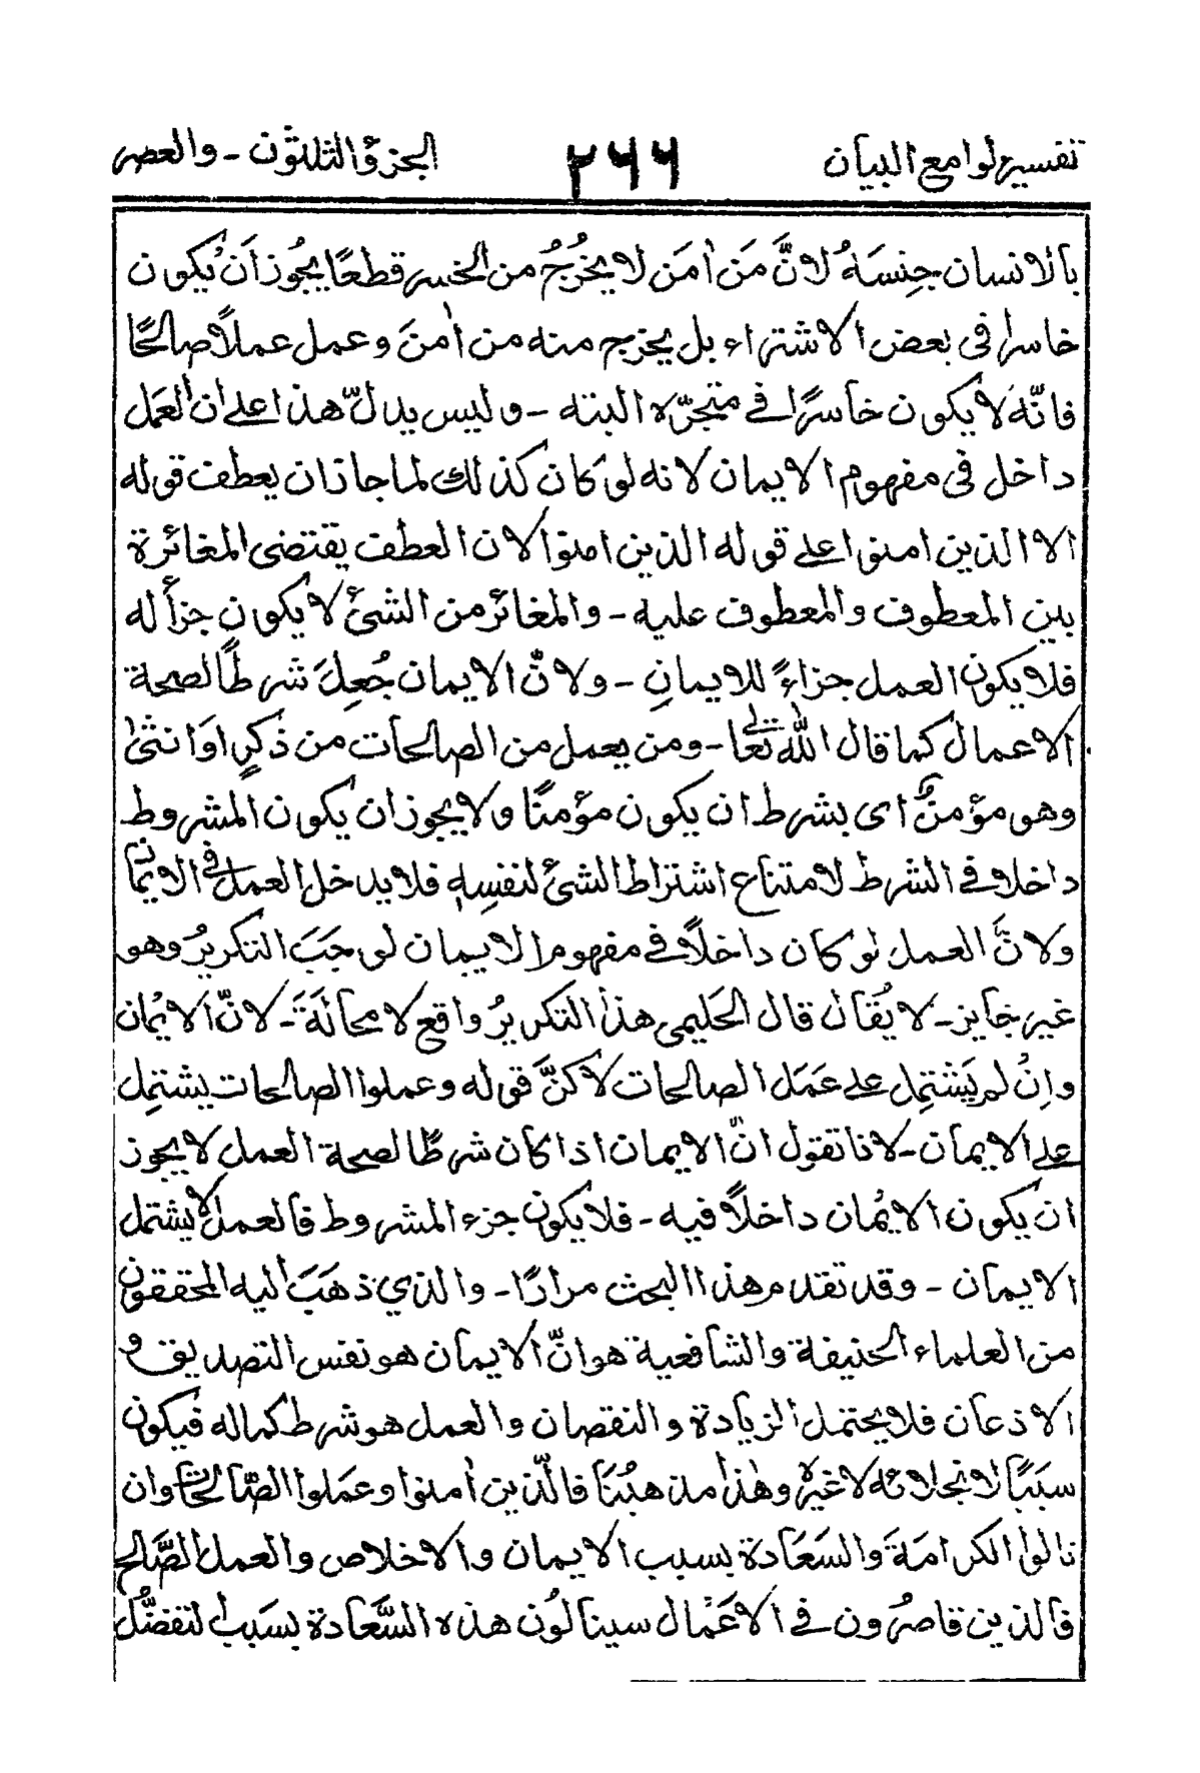 تفسير لوامع البيان ٢٦٦ الجزء الثلثون - والعصر
بالانسان جِنسَهُ لانَّ مَن اٰمَن لا يخْرُجُ من الخسر قطعًا يجُوز اَن يُكون
خاسرا فى بعض الاشتراء بل يخرج منه من اٰمنَ وعمل عملاً صالحًا
فانّه لا يكون خاسرًا فى متجرّه البته - وليس يدلّ هذا على ان العمَل
داخل فى مفهوم الايمان لانه لو كان كذلك لما جاز ان يعطف قوله
الا الذين امنوا على قوله الذين امنوا لان العطف يقتضى المغائرة
بين المعطوف والمعطوف عليه - والمغائر من الشئ لا يكون جزأ له
فلا يكون العمل جزاءً للايمانِ - ولانّ الايمان جُعِلَ شرطًا لصحة
الاعمال كما قال الله تعالى - ومن يعمل من الصالحات من ذكرٍ اَو انثىٰ
وهو مؤمنٌ اى بشرط ان يكون مؤمنًا ولا يجوز ان يكون المشروط
داخلا فى الشرط لامتناع اشتراط الشئ لنفسِه فلا يدخل العمل فى الايمان
ولانَّ العمل لو كان داخلاً فى مفهوم الايمان لوجَبَ التكريرُ وهو
غير جايز - لا يُقال قال الحليمى هذا التكريرُ واقع لا محالَةَ - لانّ الايمان
واِنْ لم يَشتمِل على عمَل الصالحات لاكنَّ قوله وعملوا الصالحات يشتمِل
على الايمان - لانا تقول انّ الايمان اذا كان شرطًا لصحة العمل لا يجوز
ان يكون الايمان داخلاً فيه - فلا يكون جزء المشروط فالعمل لا يشتمل
الايمان - وقد تقدم هذا البحث مرارًا - والذي ذهَبَ اليه المحققون
من العلماء الحنيفة والشافعية هو انّ الايمان هو نفس التصديق و
الاذعان فلا يحتمل الزيادة والنقصان والعمل هو شرط كماله فيكون
سبَبًا لانجلائه لا غيره وهٰذا مذهبُنا فالّذين اٰمنوا وعمَلوا الصّالحات وان
نالوا الكرامَةَ والسَعَادة بسبب الايمان والاخلاص والعمل الصَّالح
فالذين قاصرُون فى الاعْمال سينالوُن هذه السَّعادة بسَبب التفضُّل